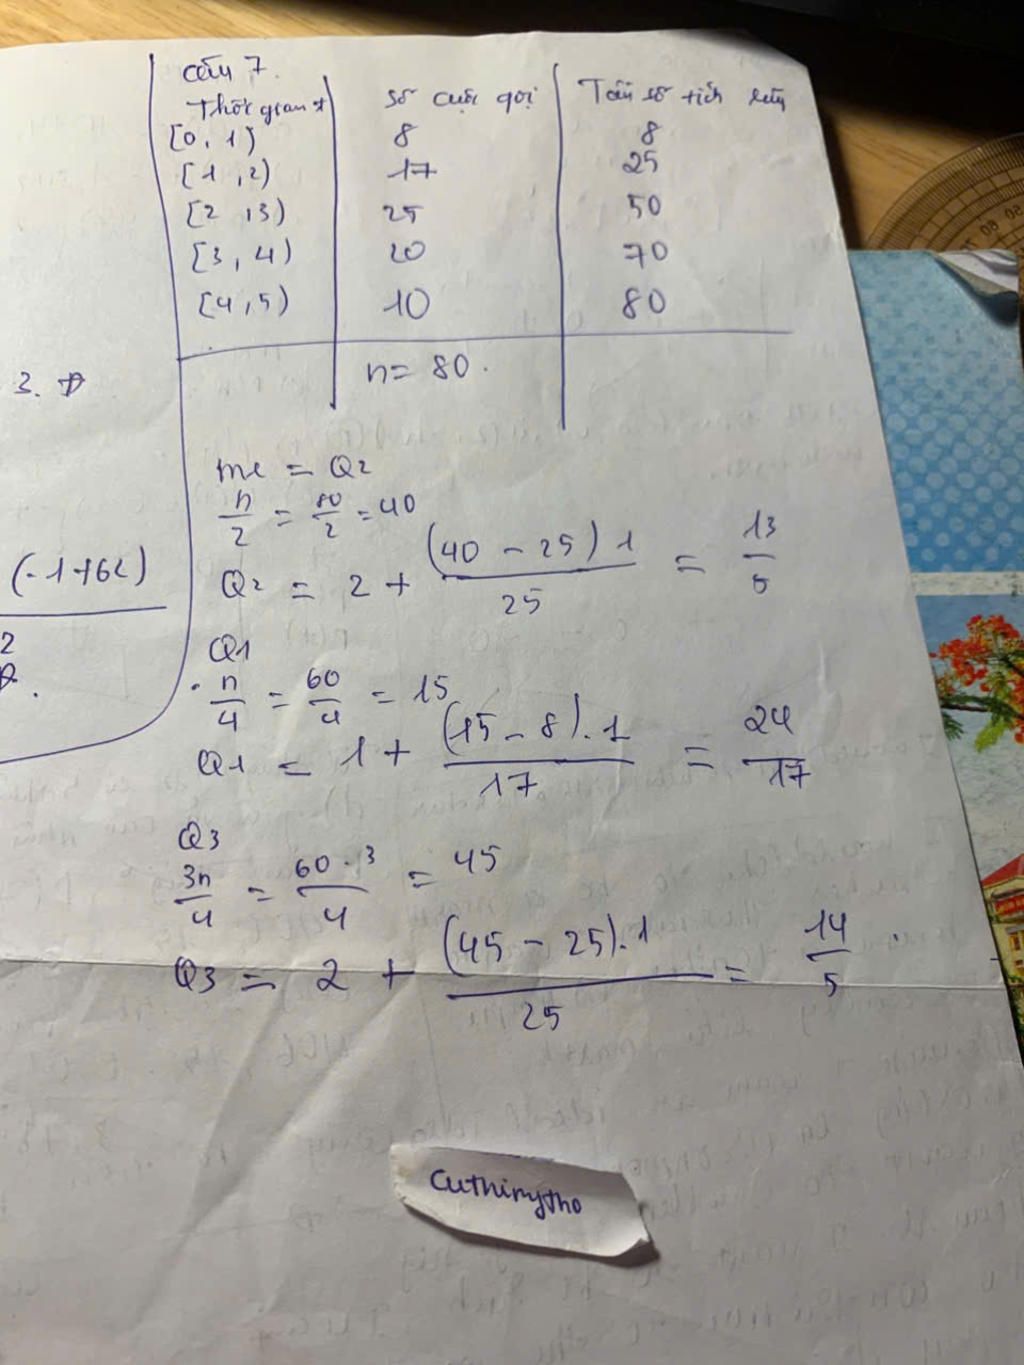 câu 7.
Thời gian t | số cuộc gọi | Tần số tích lũy
[0, 1) | 8 | 8
[1, 2) | 17 | 25
[2, 3) | 25 | 50
[3, 4) | 20 | 70
[4, 5) | 10 | 80
n = 80.
3.
(-1+62)
2
me = Q2
n/2 = 80/2 = 40
Q2 = 2 + (40 - 25) 1 / 25 = 13/5
Q1
n/4 = 60/4 = 15
Q1 = 1 + (15 - 8).1 / 17 = 24/17
Q3
3n/4 = 60.3/4 = 45
Q3 = 2 + (45 - 25).1 / 25 = 14/5.
cuthimytho